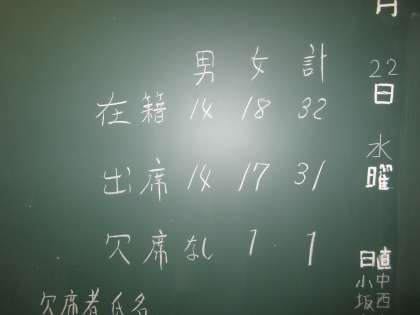 男 女 計
在籍 14 18 32
出席 14 17 31
欠席 なし 1 1
欠席者氏名
月
22
日
水
曜
日直
小坂
中西